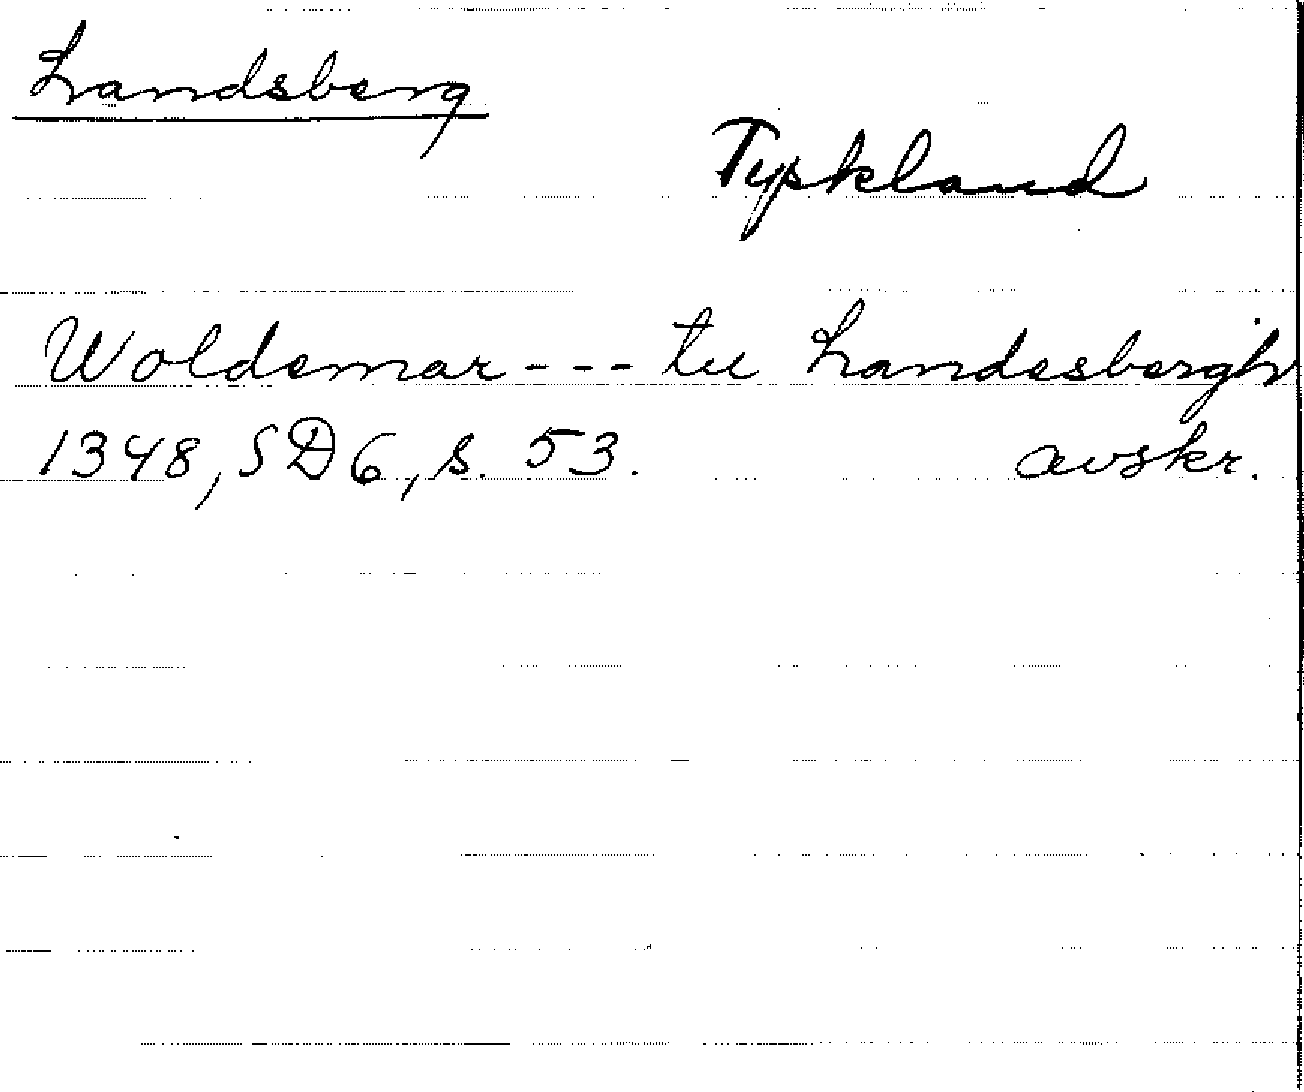 Landsberg
Tyskland
Woldemar - - - tu Landesbergh
1348, SD6, s. 53. avskr.